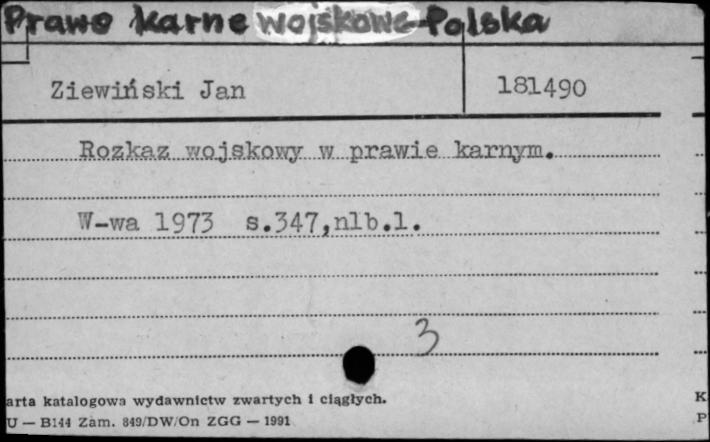 Prawo karne wojskowe-Polska
Ziewiński Jan 181490
Rozkaz wojskowy w prawie karnym.
W-wa 1973 s.347,nlb.1.
3
arta katalogowa wydawnictw zwartych i ciągłych.
U — B144 Zam. 849/DW/On ZGG — 1991
K
P